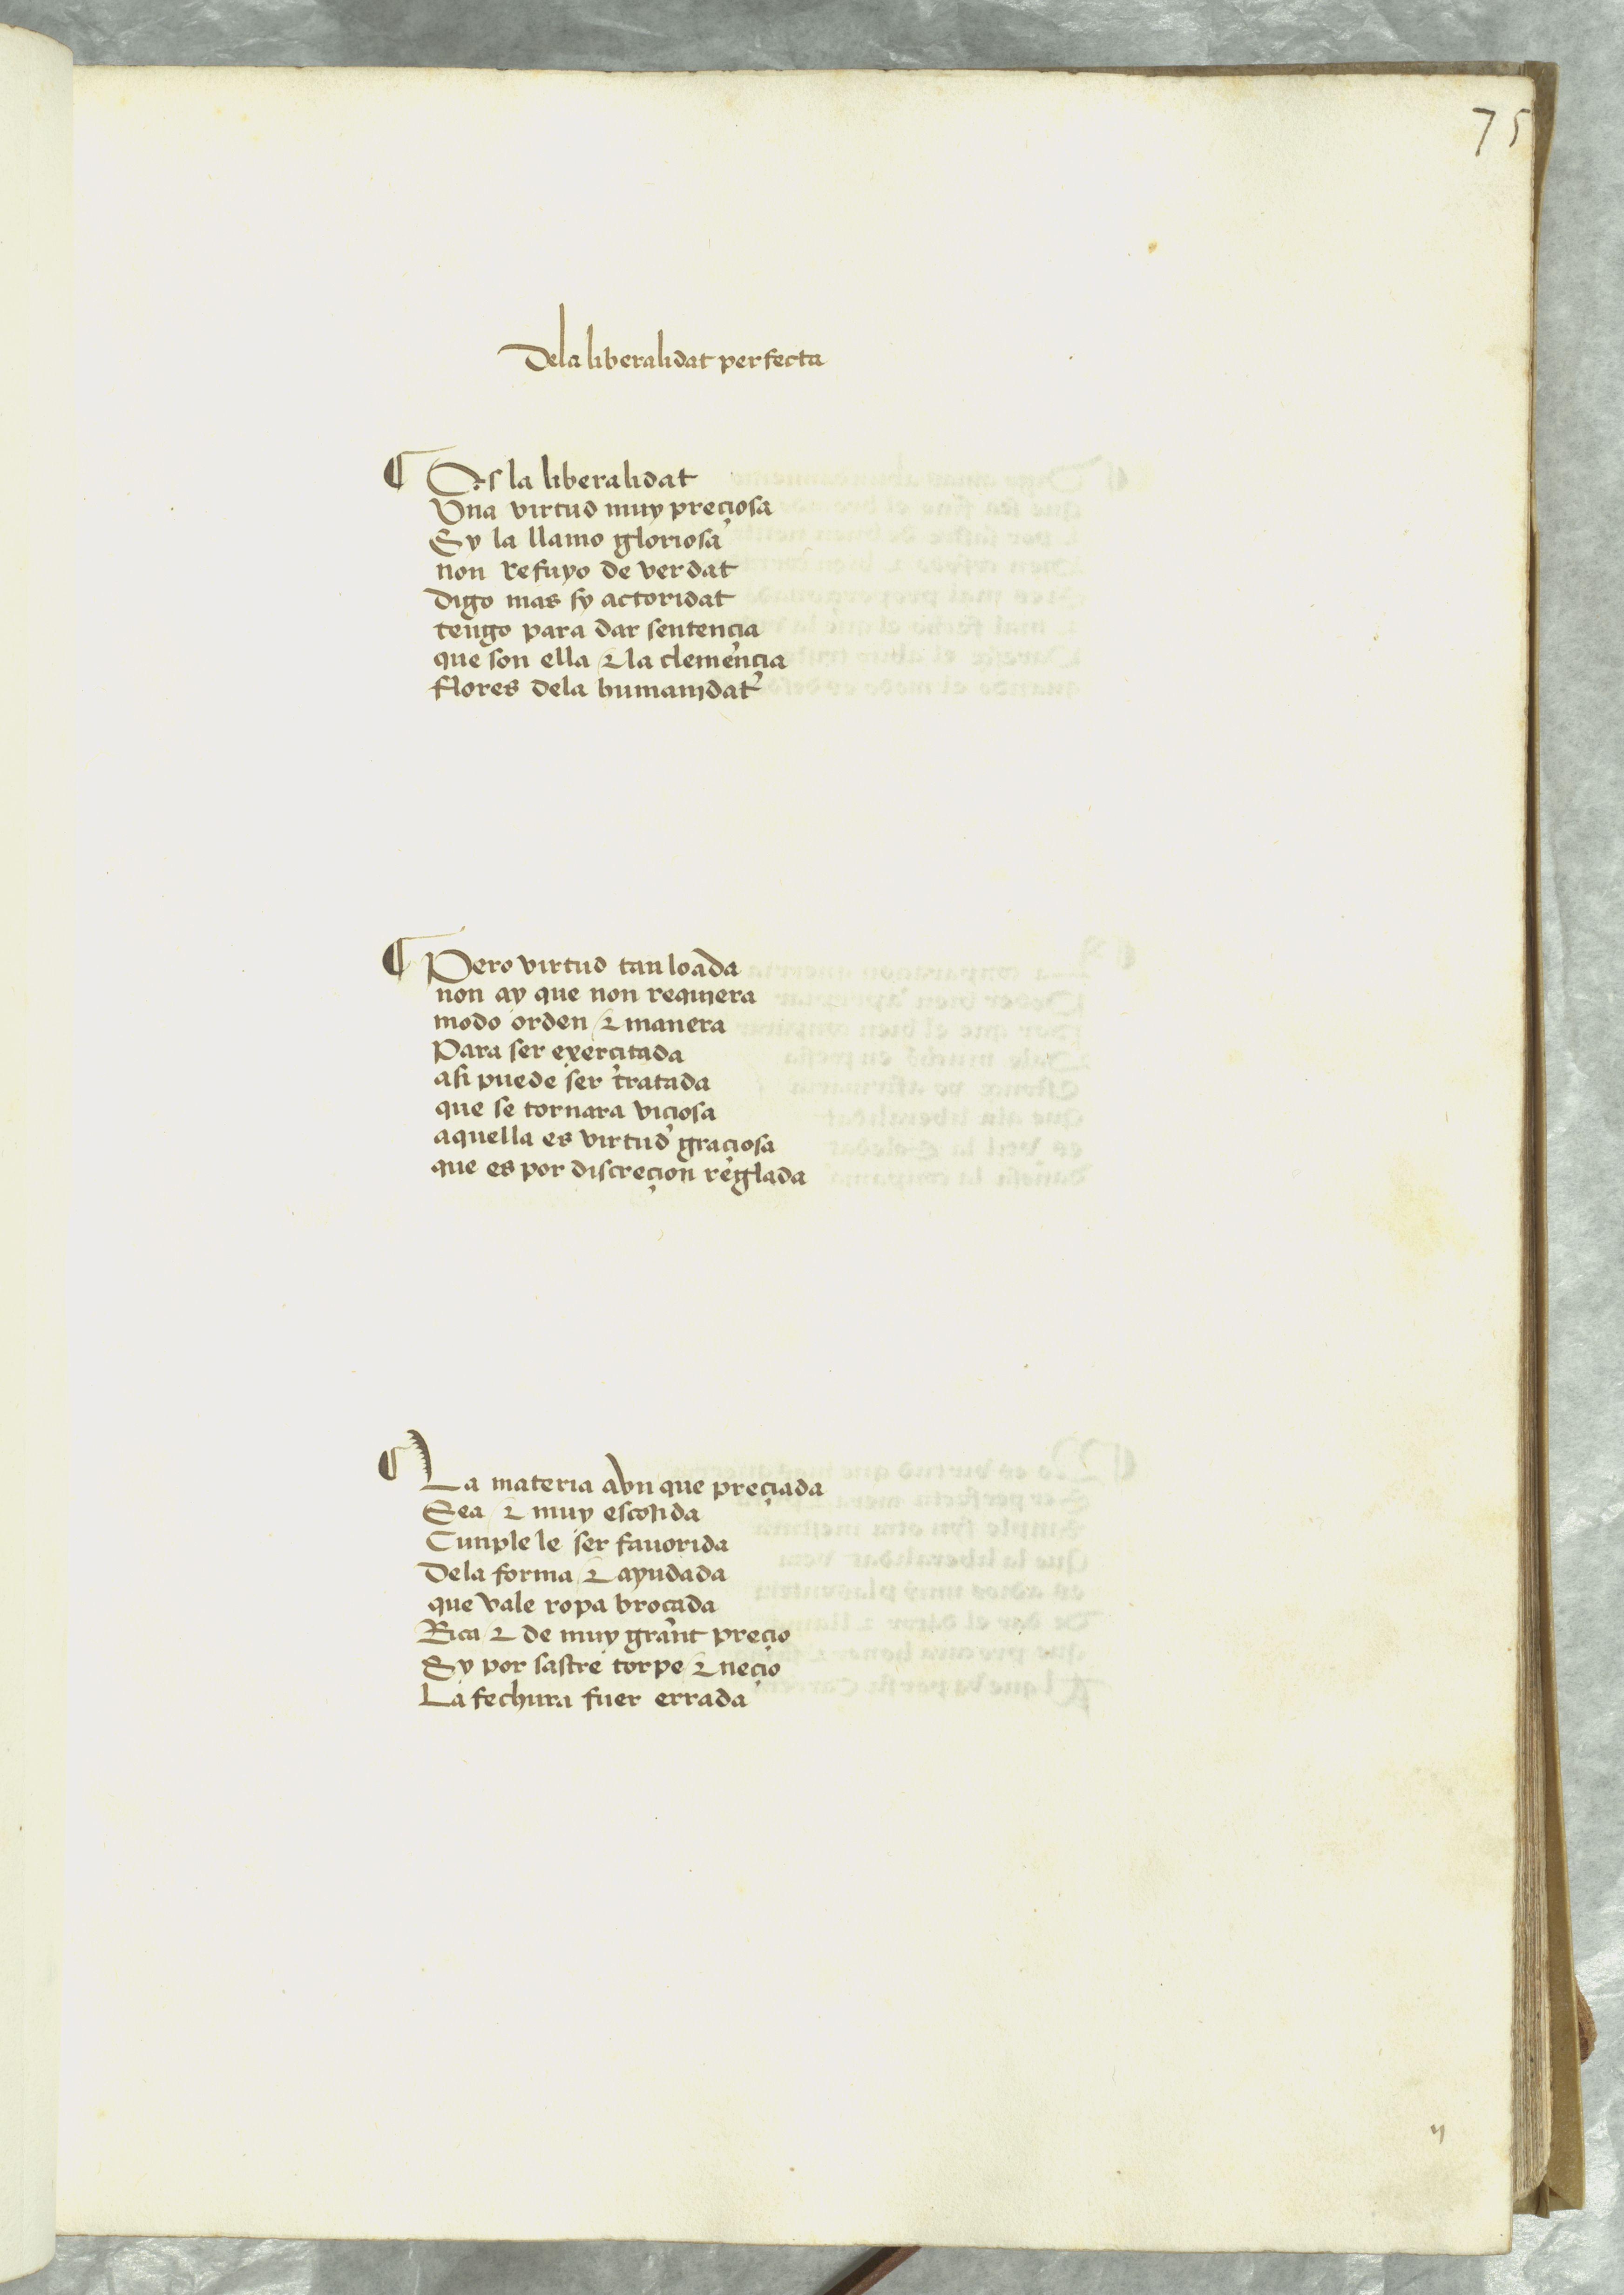 75
Dela liberalidat perfecta
¶ Es la liberalidat
Vna virtud muy preçiosa
Sy la llamo gloriosa
non refuyo de verdat
Digo mas sy actoridat
tengo para dar sentençia
que son ella & la clemençia
flores dela humanidat
¶ Pero virtud tan loada
non ay que non requiera
modo orden & manera
Para ser exerçitada
asi puede ser tratada
que se tornara viçiosa
aquella es virtud graçiosa
que es por discreçion reglada
¶ La materia avn que preçiada
Sea & muy escojida
Cunple le ser fauorida
Dela forma & ayudada
que vale ropa brocada
Rica & de muy grant preçio
Sy por sastre torpe & neçio
La fechura fuer errada